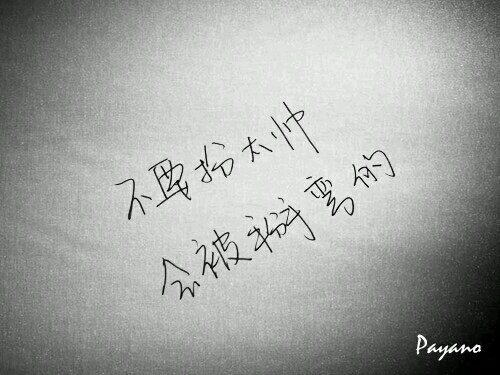 不要扮太帅
会被掰弯的
Payano